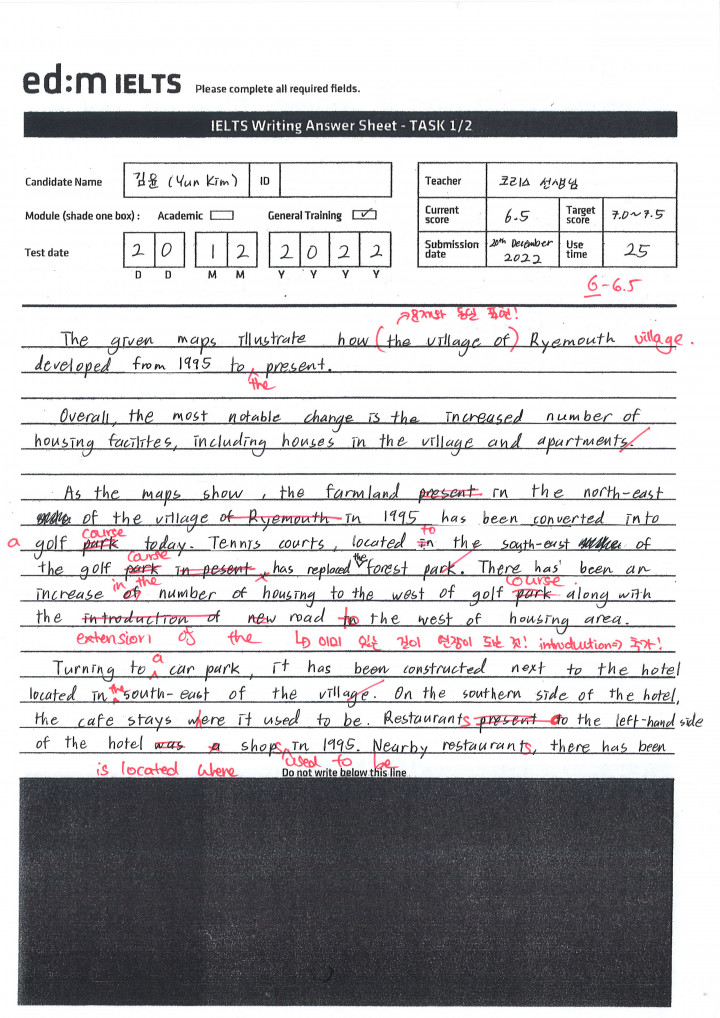 ed:m IELTS Please complete all required fields.
IELTS Writing Answer Sheet - TASK 1/2
Candidate Name 김윤 (Yun Kim) ID
Teacher 코리스 선생님
Module (shade one box) : Academic General Training ✓
Current score 6.5 Target score 7.0~7.5
Test date 2 0 1 2 2 0 2 2
D D M M Y Y Y Y
Submission date 20th December 2022 Use time 25
6-6.5
→용지와 동일 표현!
The given maps illustrate how (the village of) Ryemouth village.
developed from 1995 to present.
the
Overall, the most notable change is the increased number of
housing facilites, including houses in the village and apartments.
As the maps show, the farmland present in the north-east
of the village of Ryemouth in 1995 has been converted into
course to
a golf park today. Tennis courts, located in the south-east of
course the
the golf park in present has replaced forest park. There has been an
in the course
increase of number of housing to the west of golf park along with
the introduction of new road to the west of housing area.
extension of the ↳ 이미 있는 길이 연장이 되는 것! introduction⇒ 추가!
a
Turning to car park, it has been constructed next to the hotel
the
located in south-east of the village. On the southern side of the hotel,
the cafe stays where it used to be. Restaurants present to the left-hand side
of the hotel was a shops in 1995. Nearby restaurants, there has been
is located where used to be
Do not write below this line